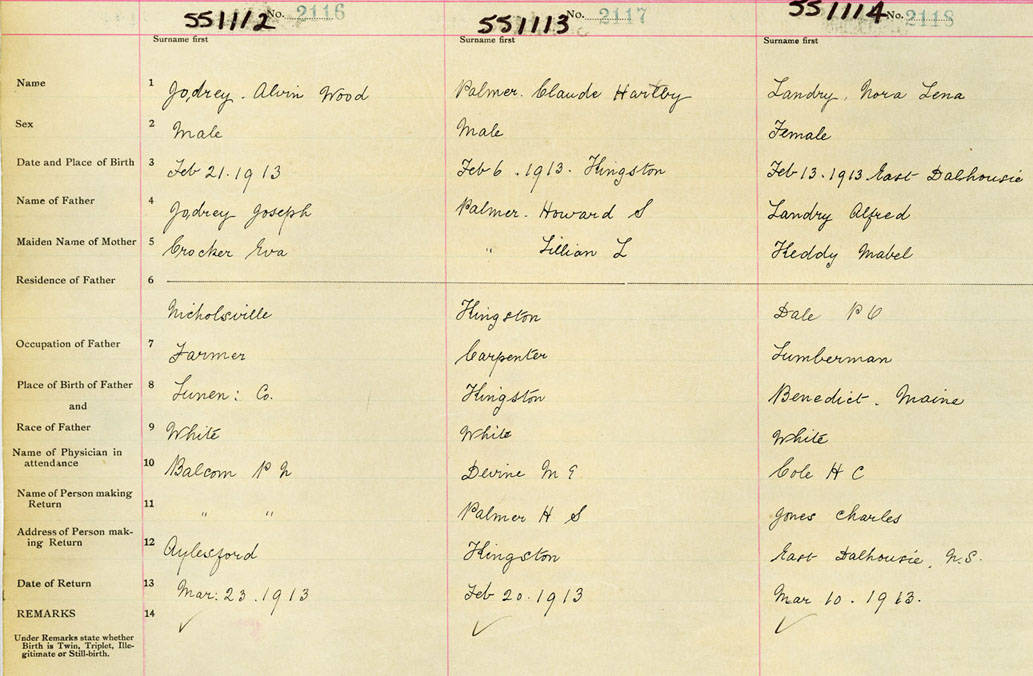 551112 No. 2116 551113 No. 2117 551114 No. 2118
Surname first Surname first Surname first
Name 1 Jodrey. Alvin Wood Palmer. Claude Hartley Landry, Nora Lena
Sex 2 Male Male Female
Date and Place of Birth 3 Feb 21. 1913 Feb 6. 1913. Kingston Feb 13. 1913 East Dalhousie
Name of Father 4 Jodrey Joseph Palmer. Howard S Landry Alfred
Maiden Name of Mother 5 Crocker Eva " Lillian L Keddy Mabel
Residence of Father 6
Nicholsville Kingston Dale P O
Occupation of Father 7 Farmer Carpenter Lumberman
Place of Birth of Father 8 Lunen: Co. Kingston Benedict. Maine
and
Race of Father 9 White White White
Name of Physician in
attendance 10 Balcom P N Devine M E Cole H C
Name of Person making
Return 11 " " Palmer H S Jones Charles
Address of Person mak-
ing Return 12 Aylesford Kingston East Dalhousie, N.S.
Date of Return 13 Mar. 23. 1913 Feb 20. 1913 Mar 10. 1913.
REMARKS 14 ✓ ✓ ✓
Under Remarks state whether
Birth is Twin, Triplet, Ille-
gitimate or Still-birth.